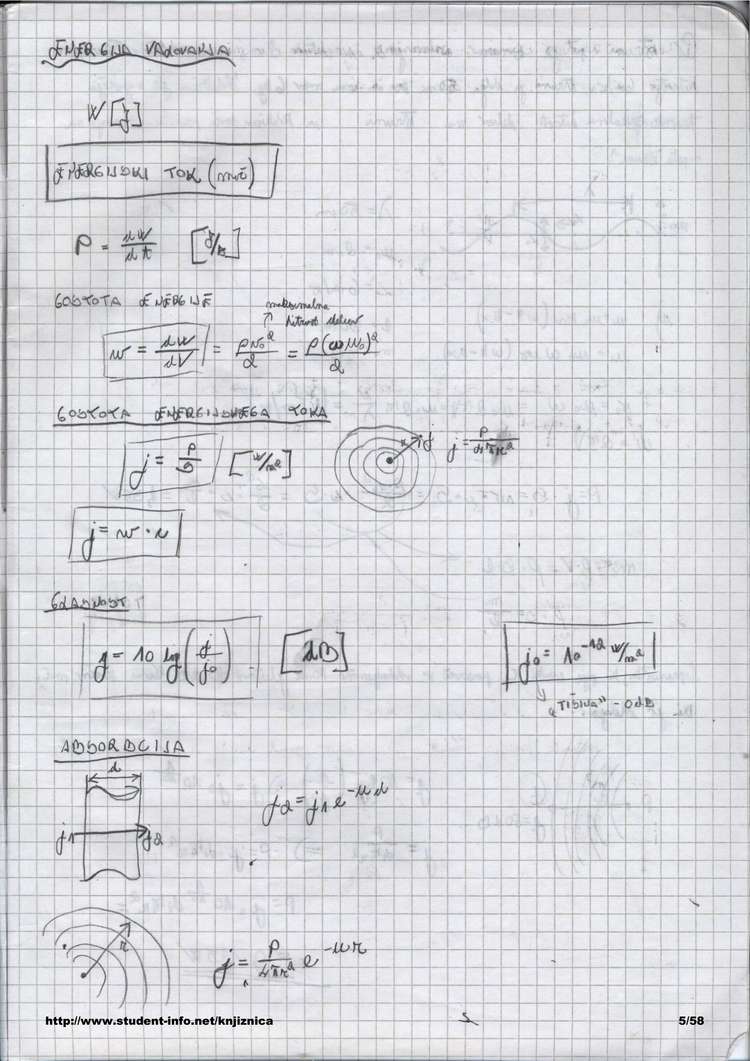 ENERGIJA VALOVANJA
W [J]
ENERGIJSKI TOK (moč)
P = dW/dt [J/s]
GOSTOTA ENERGIJE
maksimalna
hitrost delcev
w = dW/dV = ρv₀²/2 = ρ(ωu₀)²/2
GOSTOTA ENERGIJSKEGA TOKA
j = P/S [W/m²]
r j j = P/4πr²
j = w · c
GLASNOST
g = 10 log(j/j₀) [dB] j₀ = 10⁻¹² W/m²
„TIŠINA" - 0dB
ABSORBCIJA
d
j1 j2
j2 = j1 e^-μd
r
j = P/4πr² e^-μr
http://www.student-info.net/knjiznica 5/58